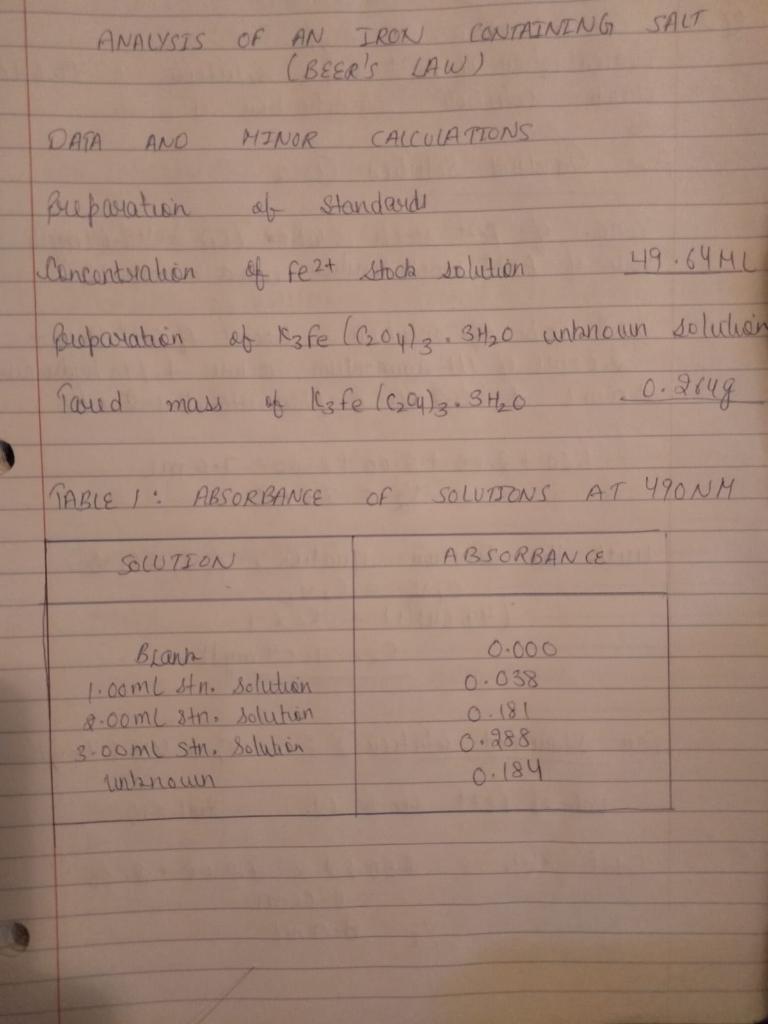 ANALYSIS OF AN IRON CONTAINING SALT
(BEER'S LAW)
DATA AND MINOR CALCULATIONS
Preparation of Standards
Concentration of Fe2+ stock solution 49.64ML
Preparation of K3Fe(C2O4)3.3H2O unknown solution
Tared mass of K3Fe(C2O4)3.3H2O 0.264g
TABLE 1: ABSORBANCE OF SOLUTIONS AT 490NM
SOLUTION ABSORBANCE
Blank 0.000
1.00ml Stn. Solution 0.038
2.00ml Stn. Solution 0.181
3.00ml Stn. Solution 0.288
unknown 0.184